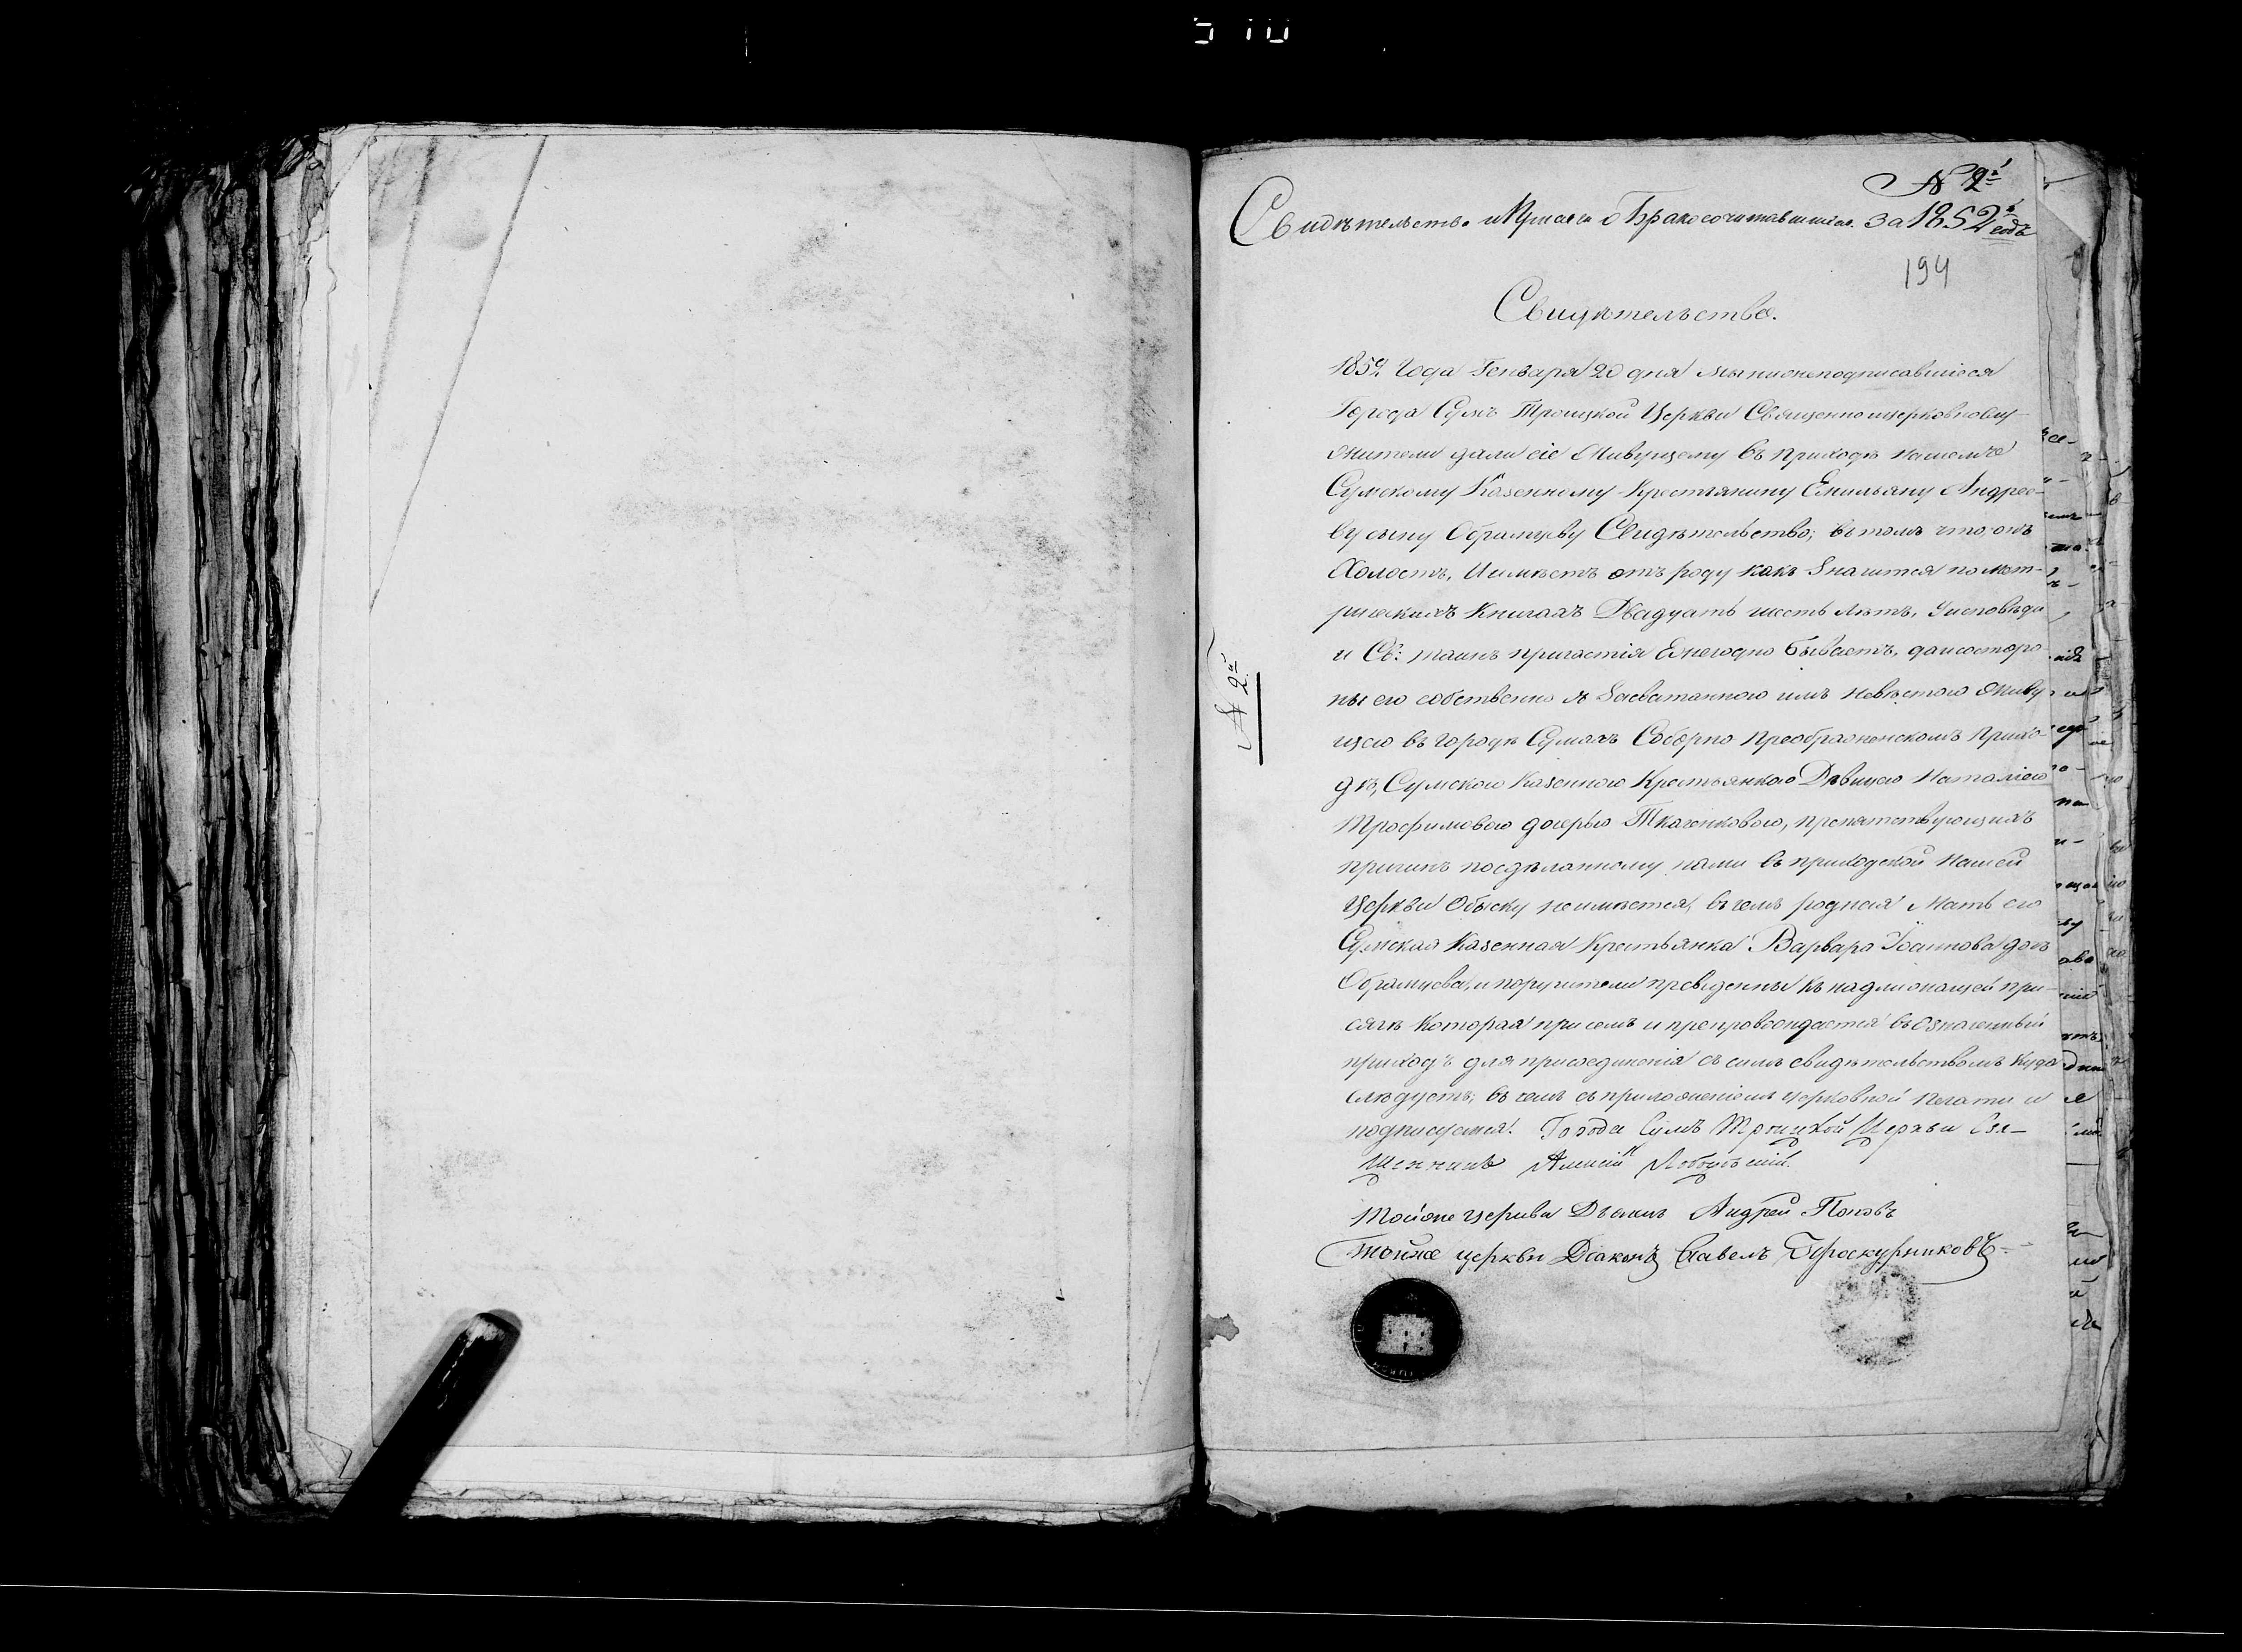 510
N 2й
Свидѣтельства и Присяги о Бракосочитавшихся за 1852й годъ
194
Свидѣтельство.
1852 Года Генваря 20 дня мы нижеподписавшіеся
Города Сумъ Троицкой Церкви Священноицерковнослу-
жители дали сіе живущему въ приходѣ нашемъ
Сумскому Казенному Крестьянину Емильяну Андрее-
ву сыну Образцеву Свидѣтельство; въ томъ что, онъ
Холостъ, Имѣетъ отъ роду какъ значится по мет-
рическихъ Книгахъ Двадцать шесть лѣтъ, Уисповѣди
и Св: таинъ причастія Ежегодно бываетъ, да исосторо
ны его собственно и засватанною имъ невѣстою живу
щею въ городѣ Сумахъ Соборно Преображенскомъ Прихо
дѣ, Сумскою Казенною Крестьянкою Дѣвицею Наталіею
Трофимовою дочерью Ткаченковою, препятствующихъ
причинъ посдѣланному нами въ приходской нашей
Церкви Обыску неимѣется, въ чемъ родная Мать его
Сумская Казенная Крестьянка Варвара Іоаннова дочь
Образцева, и поручители приведены къ надлежащей при-
сягѣ Которая при семъ и препровождается въ Означенный
приход для присоединенія съ симъ свидѣтельствомъ куда
слѣдуетъ, въ чемъ съ приложеніемъ церковной печати и
подписуемся. Города Сумъ Троицкой Церкви Свя-
щенникъ Алексій
Тойже церкви Дьякъ Андрей Поповъ
Тойже церкви Діаконъ Павелъ Проскурниковъ
N 2й